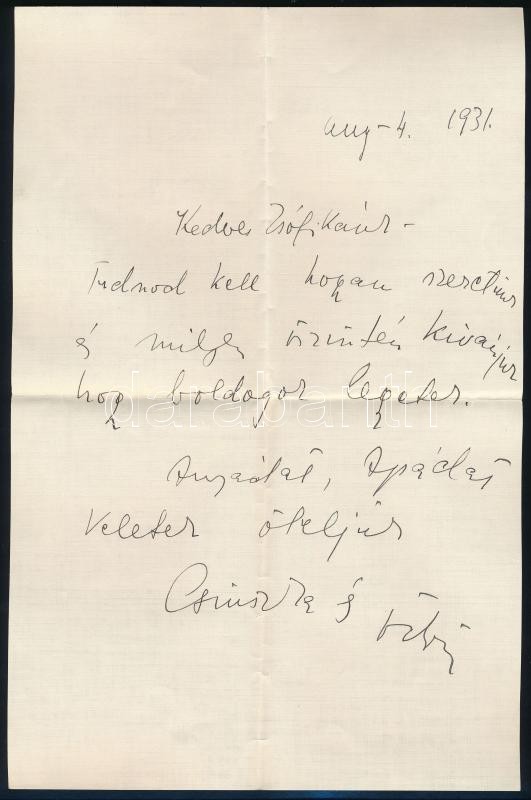 aug - 4. 1931.
Kedves Zsófikánk -
Tudnod kell hogyan szeretünk
és milyen őszintén kivánjuk
hogy boldogok legyetek.
darabanth
Anyádat, Apádat
Veletek öleljük
Csinszka és